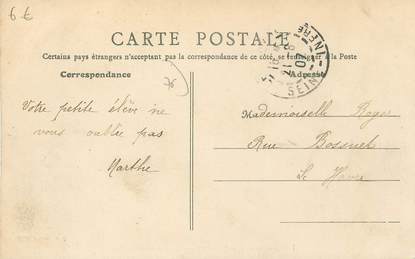 6 €
CARTE POSTALE
Certains pays étrangers n'acceptant pas la correspondance de ce côté, se renseigner à la Poste
Correspondance
76
Adresse
SEINE
Votre petite élève ne
vous oublie pas
Marthe
Mademoiselle Roger
Rue Bossuet
Le Havre